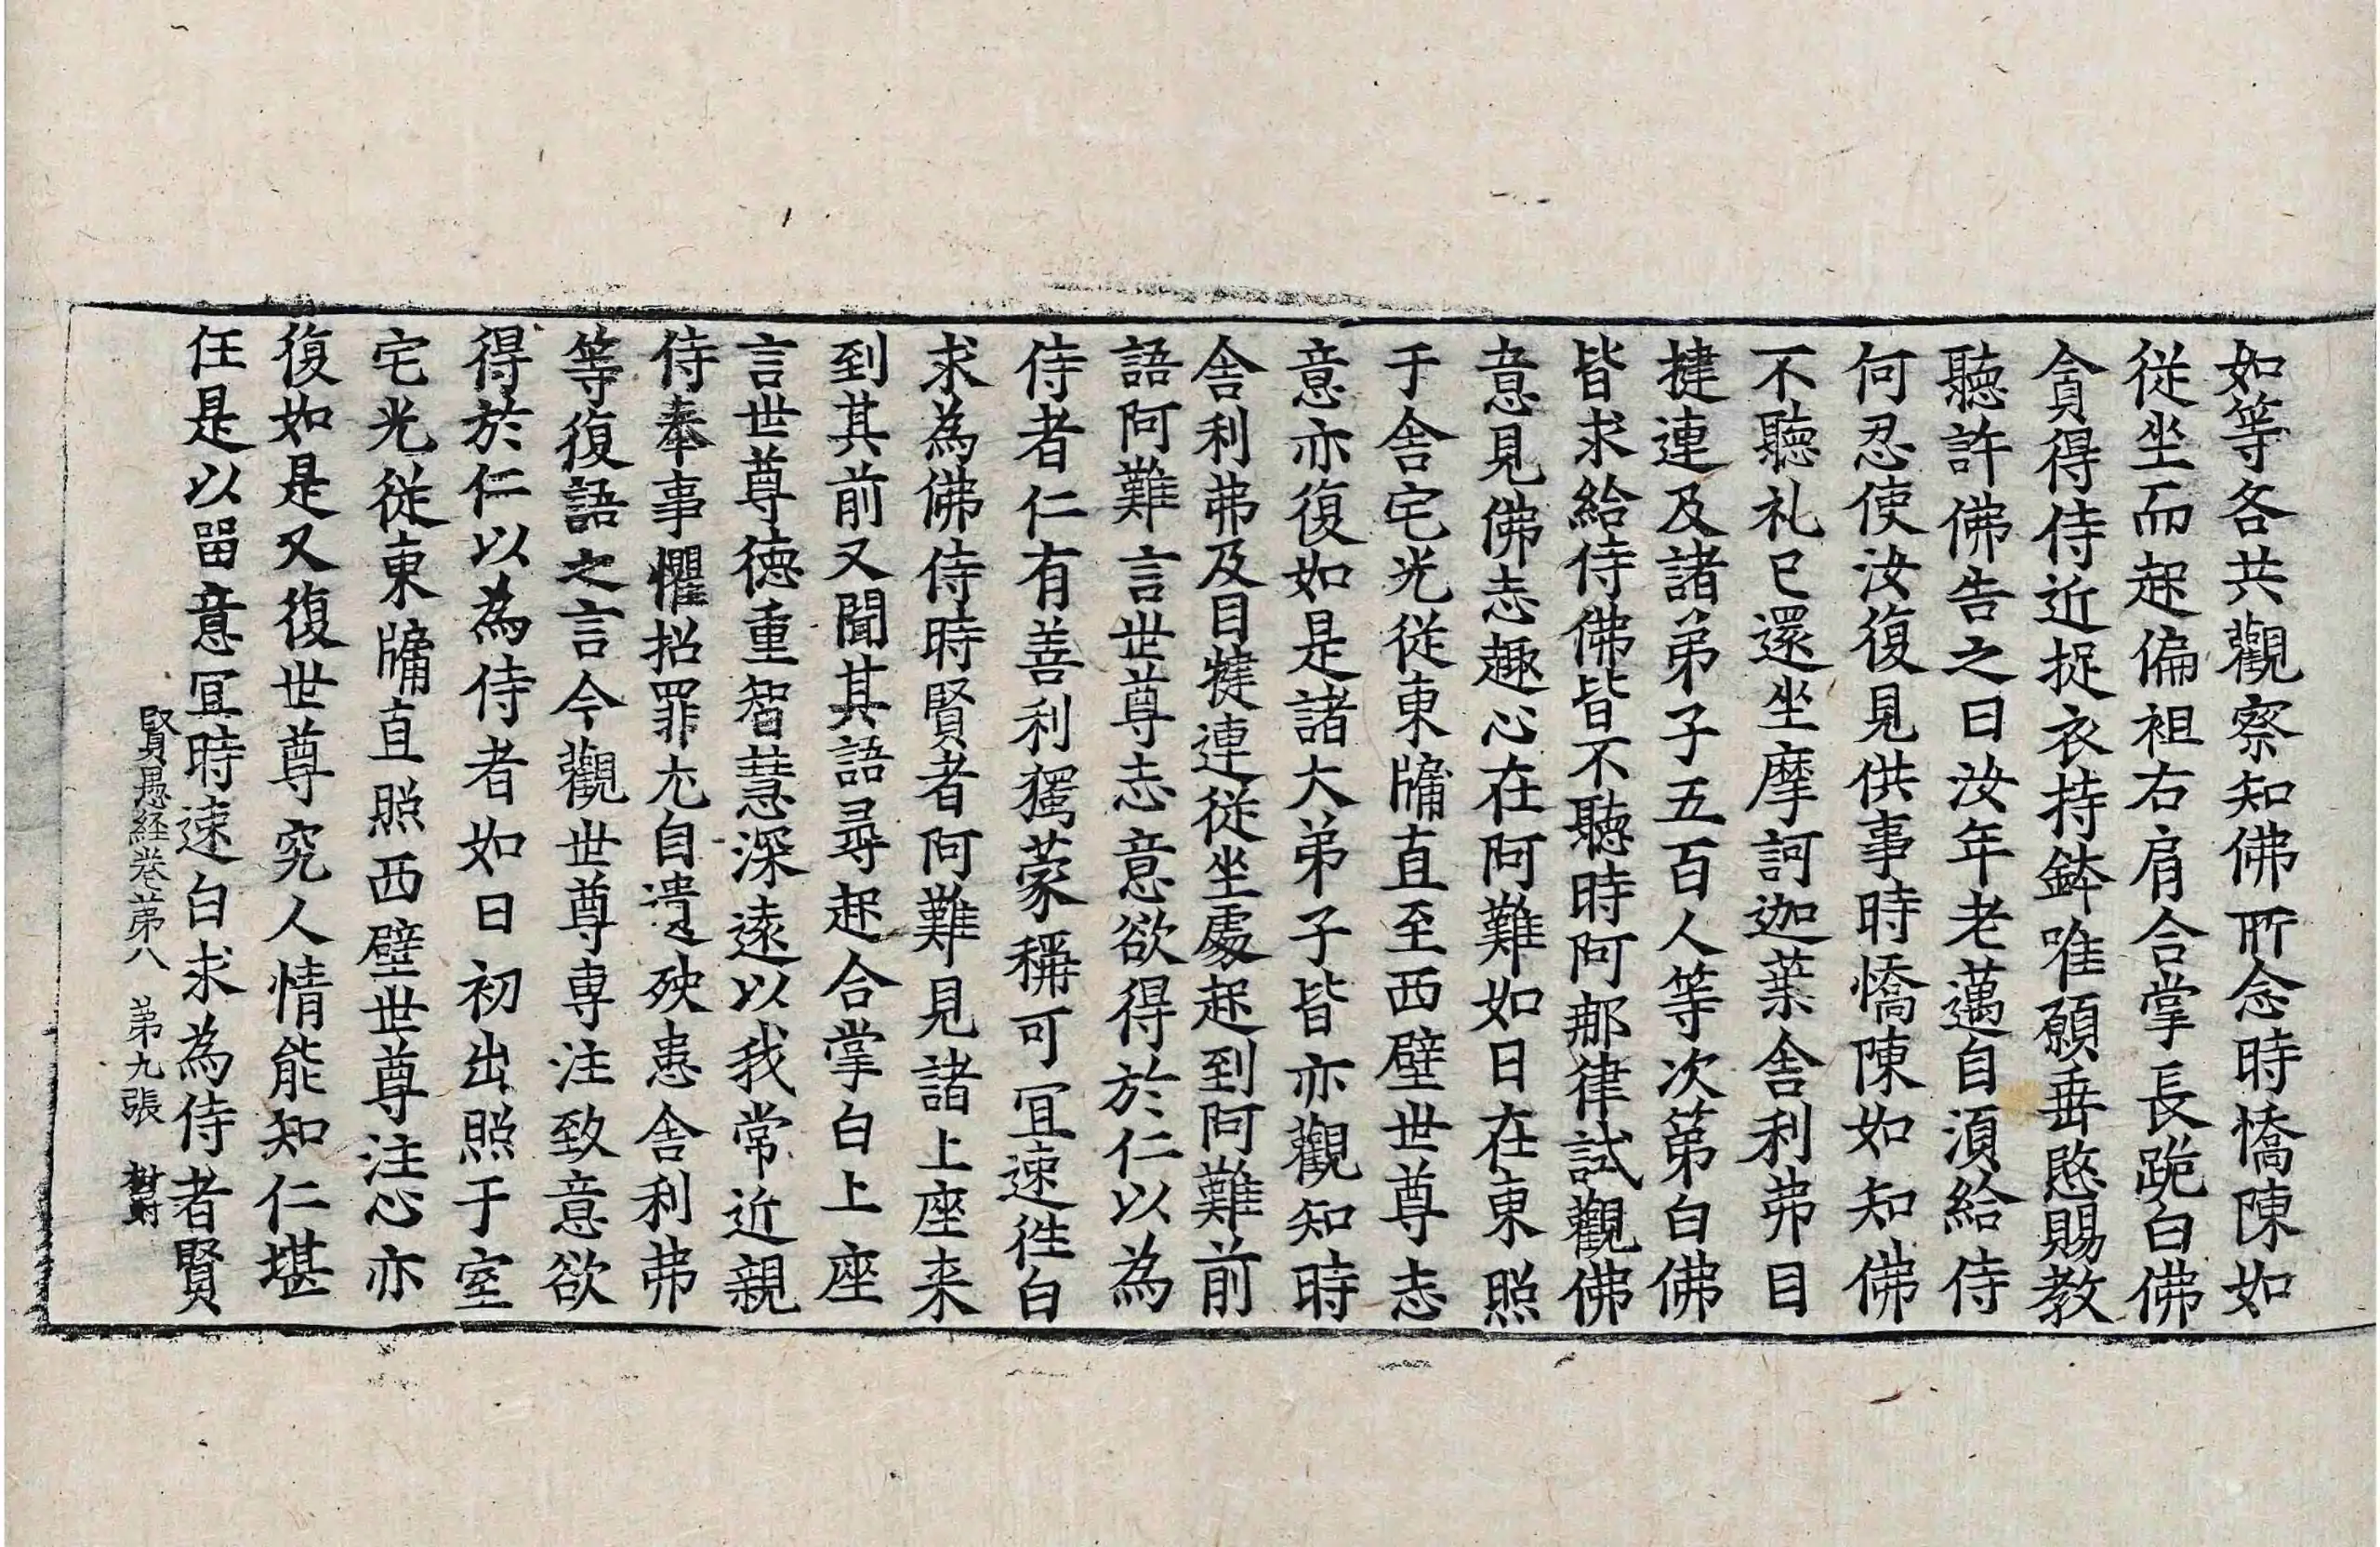 如等各共觀察知佛所念時憍陳如
從坐而起偏袒右肩合掌長跪白佛
貪得侍近捉衣持鉢唯願垂愍賜教
聽許佛告之曰汝年老邁自湏給侍
何忍使汝復見供事時憍陳如知佛
不聽礼已還坐摩訶迦葉舍利弗目
揵連及諸弟子五百人等次第白佛
皆求給侍佛皆不聽時阿那律試觀佛
意見佛志趣心在阿難如日在東照
于舍宅光從東牗直至西壁世尊志
意亦復如是諸大弟子皆亦觀知時
舍利弗及目揵連從坐處起到阿難前
語阿難言世尊志意欲得於仁以為
侍者仁有善利獨蒙稱可冝速徃白
求為佛侍時賢者阿難見諸上座来
到其前又聞其語尋起合掌白上座
言世尊德重智慧深遠以我常近親
侍奉事懼招罪尤自遺殃患舍利弗
等復語之言今觀世尊専注致意欲
得於仁以為侍者如日初出照于室
宅光從東牗直照西壁世尊注心亦
復如是又復世尊究人情能知仁堪
任是以留意冝時速白求為侍者賢
賢愚経卷苐八 苐九張